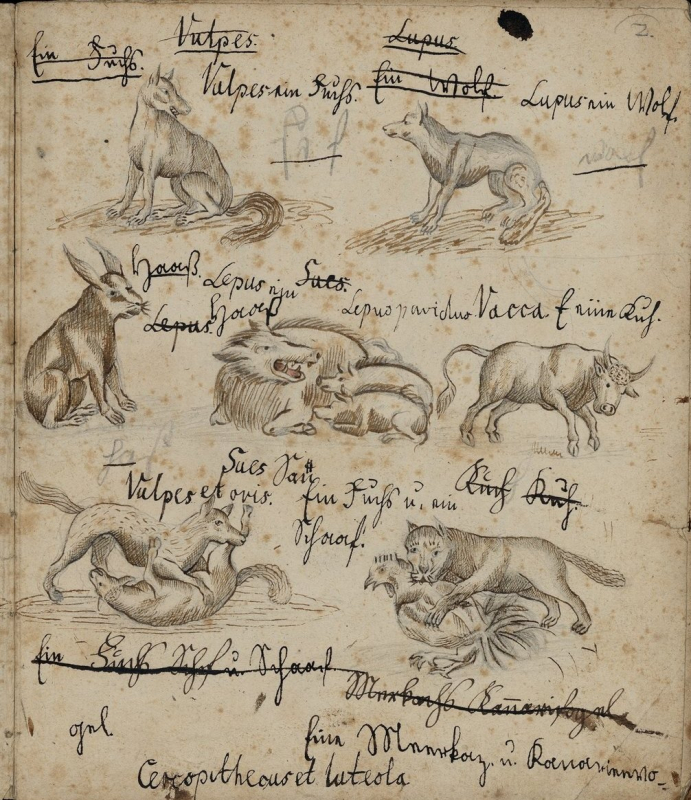 2.
Ein Fuchs.
Vulpes.
Lupus.
Vulpes ein Fuchs.
Ein Wolf.
Lupus ein Wolf.
Haaß.
Lepus ein Sues.
Lepus Haaß
Lepus pavidus Vacca. Eine Kuh.
Sues Sau
Vulpes et ovis. Ein Fuchs u. ein
Schaaf.
Kuh Kuh.
Ein Fuchs u. Schaaf
Kanarifogel
Eine Meerkaz. u. Kanarienvo=
gel.
Cercopithecus et luteola